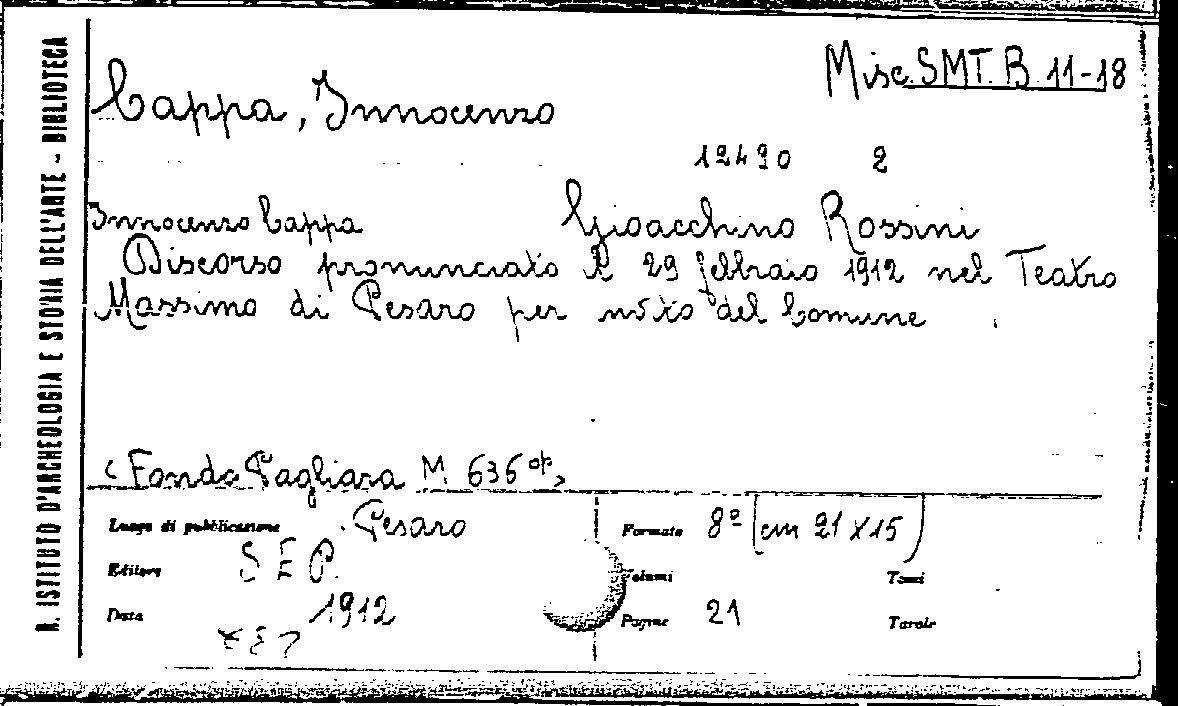 Misc. SMT. B 11-18
Cappa, Innocenzo
12490 2
Innocenzo Cappa Gioacchino Rossini
Discorso pronunciato il 29 febbraio 1912 nel Teatro
Massimo di Pesaro per del Comune
<Fondo Pagliara M 636
Luogo di pubblicazione Pesaro
Formato 8º (cm 21 x 15)
Editore S E P.
Volumi
Tomi
Data 1912
Pagine 21
Tavole
R. ISTITUTO D'ARCHEOLOGIA E STORIA DELL'ARTE - BIBLIOTECA